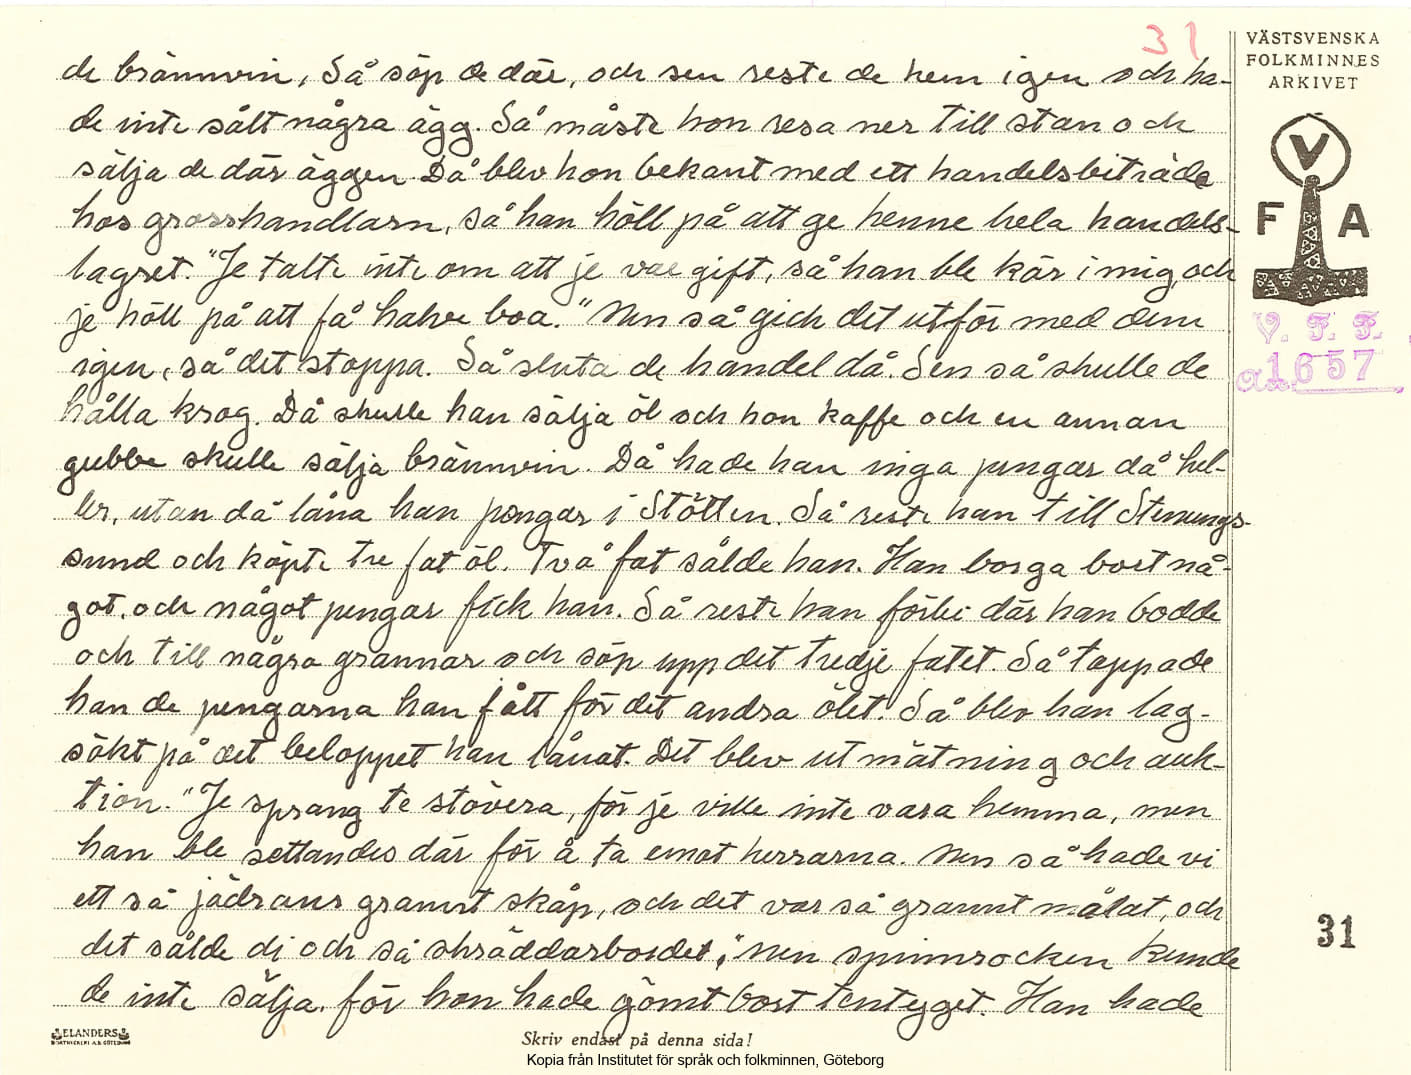 31
VÄSTSVENSKA
FOLKMINNES
ARKIVET
V
F A
V. F. F.
1657
de brännvin, Så söp de där, och sen reste de hem igen och ha-
de inte sålt några ägg. Så måste hon resa ner till stan och
sälja de där äggen. Då blev hon bekant med ett handelsbiträde
hos grosshandlarn, så han höll på att ge henne hela handels-
lagret. "Je talte inte om att je var gift, så han ble kär i mig, och
je höll på att få halve boa." Men så gick det utför med dem
igen, så det stoppa. Så sluta de handel då. Sen så skulle de
hålla krog. Då skulle han sälja öl och hon kaffe och en annan
gubbe skulle sälja brännvin. Då hade han inga pengar då hel-
ler, utan då låna han pengar i Stötten. Så reste han till Stenungs-
sund och köpte tre fat öl. Två fat sålde han. Han borga bort nå-
got, och något pengar fick han. Så reste han förbi där han bodde
och till några grannar och söp upp det tredje fatet. Så tappade
han de pengarna han fått för det andra ölet. Så blev han lag-
sökt på det beloppet han lånat. Det blev utmätning och auk-
tion. "Je sprang te stövera, för je ville inte vara hemma, men
han ble settandes där för å ta emot herrarna. Men så hade vi
ett så jädrans grannt skåp, och det var så grannt målat, och
det sålde di och så skräddarbordet." Men spinnrocken kunde
de inte sälja, för hon hade gömt bort tentyget. Han hade
31
ELANDERS
Skriv endast på denna sida!
Kopia från Institutet för språk och folkminnen, Göteborg